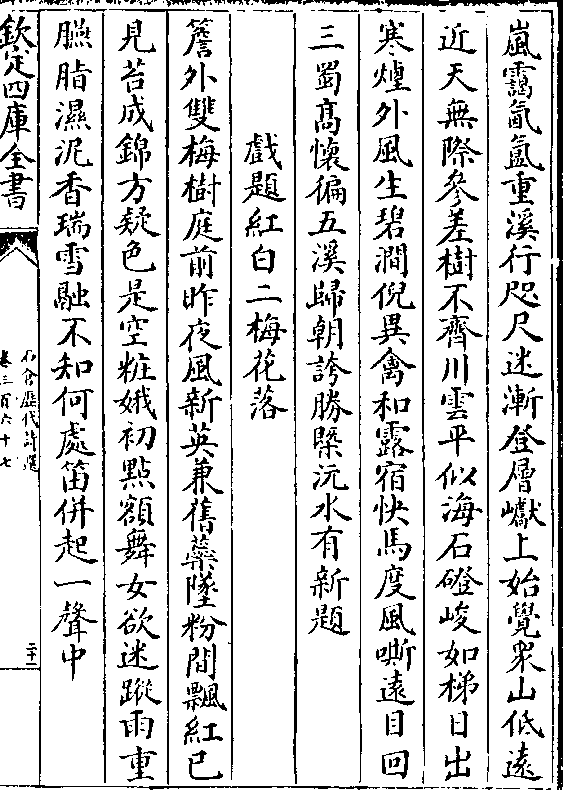 嵐靄氤氳重溪行咫尺迷漸登層巘上始覺衆山低遠
近天無際參差樹不齊川雲平似海石磴峻如梯日出
寒煙外風生碧澗倪異禽和露宿快馬度風嘶遠目回
三蜀髙懷徧五溪歸朝誇勝槩沅水有新題
戲題紅白二梅花落
簷外雙梅樹庭前昨夜風新英兼舊蘂墜粉間飄紅已
見苔成錦方疑色是空粧娥初點額舞女欲迷蹤雨重
臙脂濕泥香瑞雪融不知何處笛併起一聲中
欽定四庫全書
石倉歴代詩選
卷三百六十七
二十